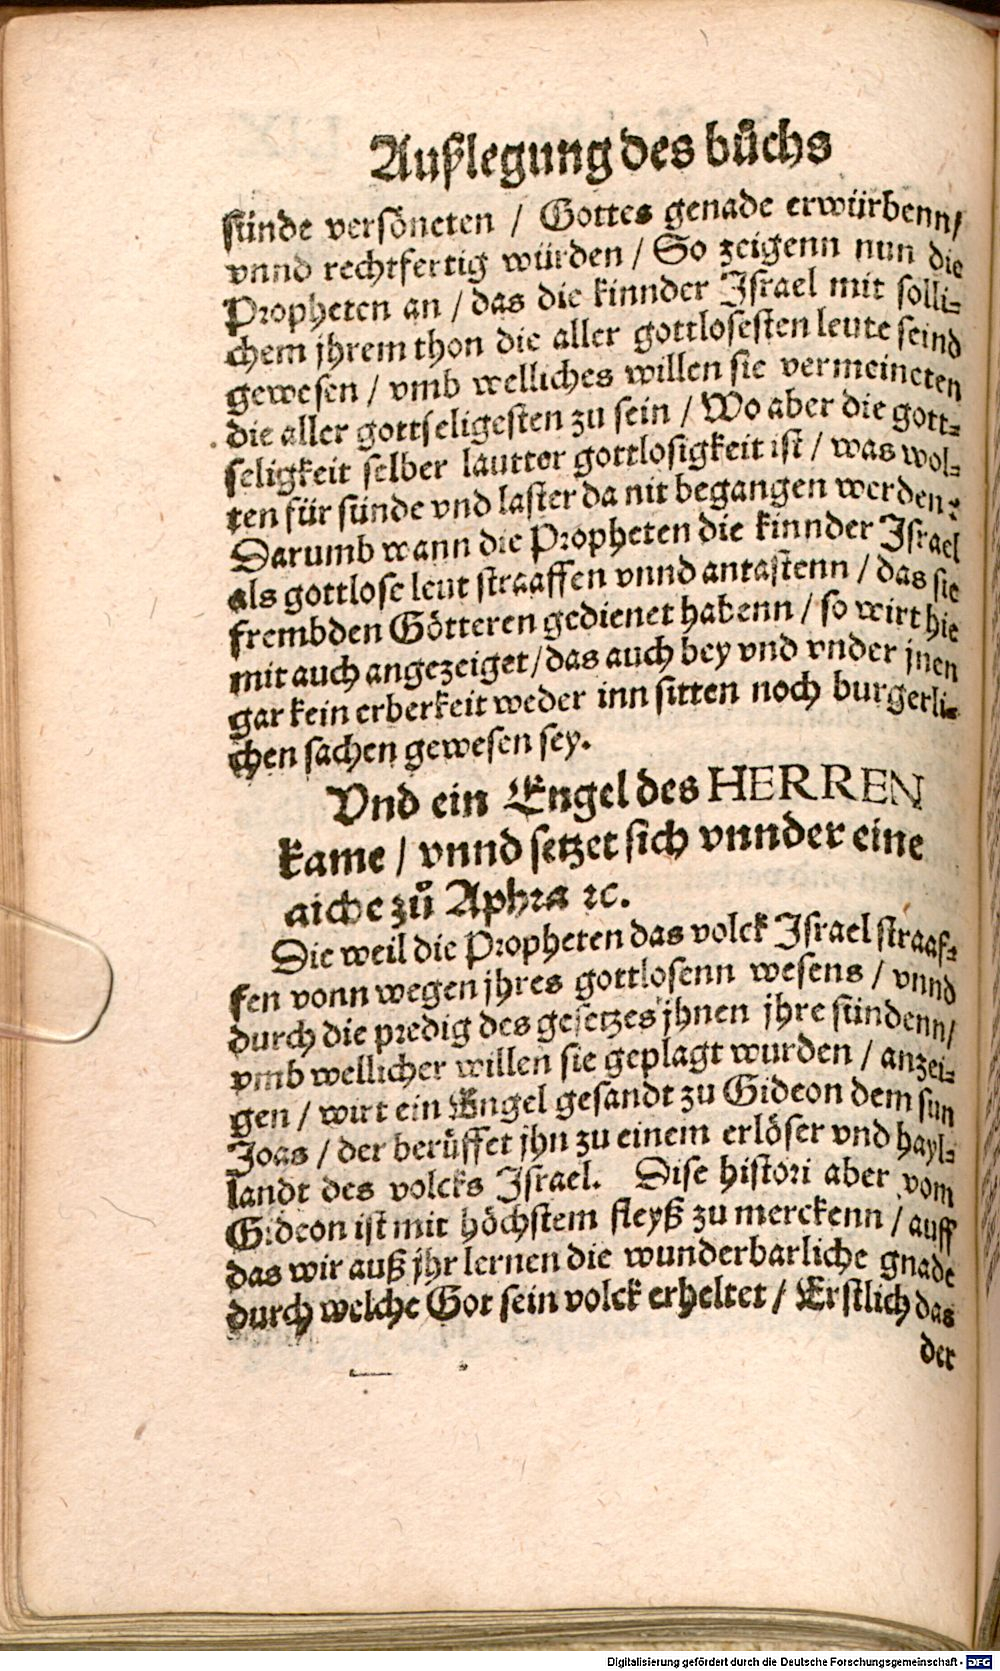 Außlegung des bůchs
sünde versöneten / Gottes genade erwürbenn /
vnnd rechtfertig würden / So zeigenn nun die
Propheten an / das die kinnder Israel mit solli⸗
chem jhrem thon die aller gottlosesten leute seind
gewesen / vmb welliches willen sie vermeineten
die aller gottseligesten zu sein / Wo aber die gott⸗
seligkeit selber lautter gottlosigkeit ist / was wol⸗
ten für sünde vnd laster da nit begangen werden?
Darumb wann die Propheten die kinnder Israel
als gottlose leut straaffen vnnd antastenn / das sie
frembden Götteren gedienet habenn / so wirt hie
mit auch angezeiget / das auch bey vnd vnder jnen
gar kein erberkeit weder inn sitten noch burgerli⸗
chen sachen gewesen sey.
Vnd ein Engel des HERREN
kame / vnnd setzet sich vnnder eine
aiche zů Aphra ꝛc.
Die weil die Propheten das volck Israel straaf⸗
fen vonn wegen jhres gottlosenn wesens / vnnd
durch die predig des gesetzes jhnen jhre sündenn /
vmb wellicher willen sie geplagt wurden / anzei⸗
gen / wirt ein Engel gesandt zu Gideon dem sun
Joas / der berüffet jhn zu einem erlöser vnd hayl⸗
landt des volcks Israel. Dise histori aber vom
Gideon ist mit höchstem fleyß zu merckenn / auff
das wir auß jhr lernen die wunderbarliche gnade
durch welche Got sein volck erheltet / Erstlich das
der
Digitalisierung gefördert durch die Deutsche Forschungsgemeinschaft - DFG